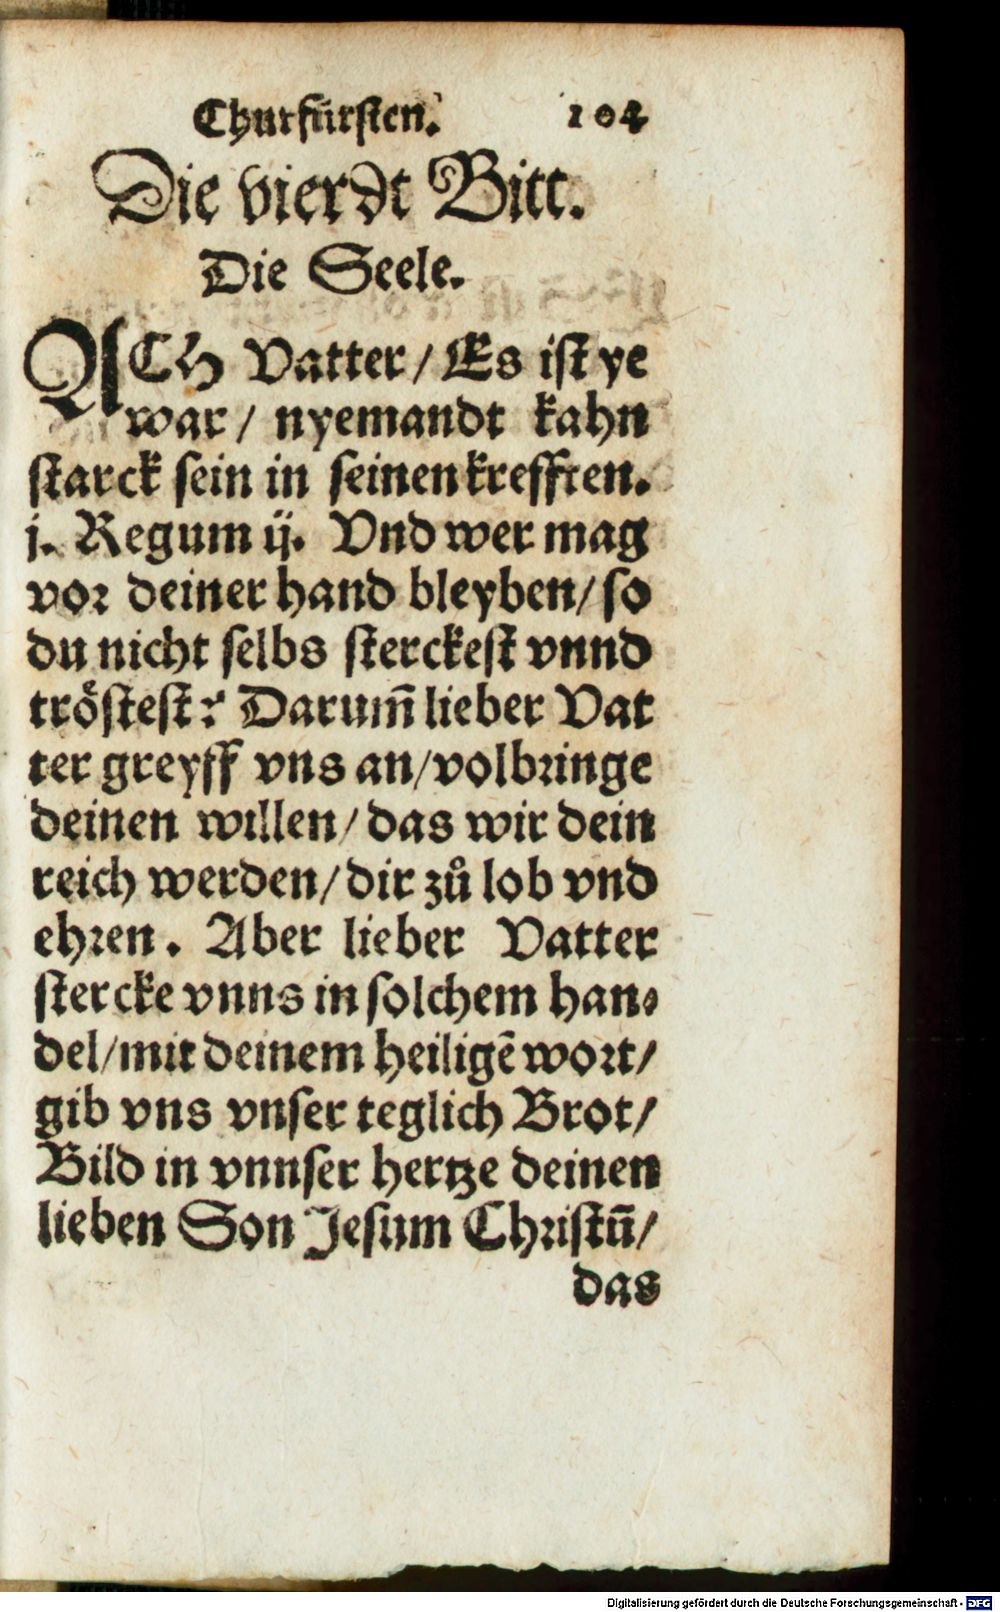 Churfürsten. 104
Die vierdt Bitt.
Die Seele.
ACH Vatter / Es ist ye
war / nyemandt kahn
starck sein in seinen krefften.
j. Regum ij. Vnd wer mag
vor deiner hand bleyben / so
du nicht selbs sterckest vnnd
tröstest? Darum̃ lieber Vat
ter greyff vns an / volbringe
deinen willen / das wir dein
reich werden / dir zů lob vnd
ehren. Aber lieber Vatter
stercke vnns in solchem han⸗
del / mit deinem heiligẽ wort /
gib vns vnser teglich Brot /
Bild in vnnser hertze deinen
lieben Son Jesum Christũ /
das
Digitalisierung gefördert durch die Deutsche Forschungsgemeinschaft - DFG